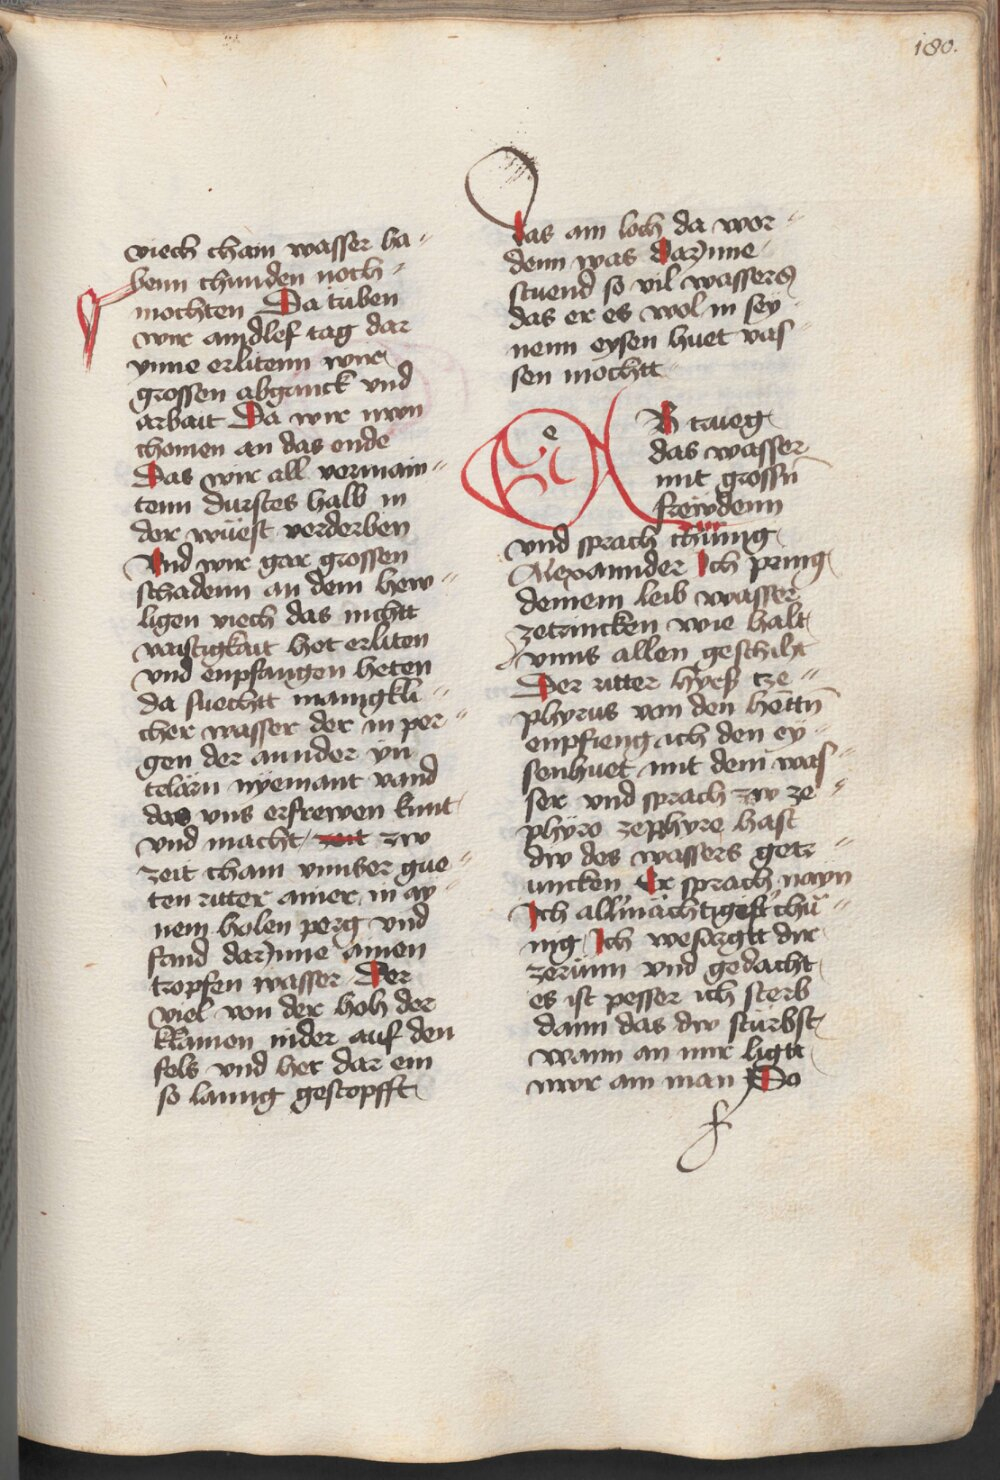 180.
viech cham wasser ha〃
benn chunden noch〃
mochten Da tuben
wir aindlef tag dar
ynne erlitenn wir
grossen abganck vnd
arbait Da wir nwn
chomen an das ende
Das wir all vermain〃
tenn durstes halb in
der wüest verderben
Vnd wir gar grossen
schadenn an dem hew〃
ligen viech das nichtt
vaistigkait het erliten
vnd enpfangen heten
da suechtt manigkli〃
cher wasser der in per〃
gen der annder yn
telärn nyemant vand
das vns erfrewen kunt
vnd macht zw
zeit cham vnnser gue〃
ten ritter ainer in ay〃
nem holen perg vnd
fand darynne ainen
tropfen wasser Der
viel von der hoh der
klamen nider auf den
fels vnd het dar ein
so lanng gestopfft
das ain loch da wor〃
denn was darynne
stuend so vil wassers
das er es wol in sey〃
nenn eysen huet vas〃
sen mochtt
e
Er trueg
das wasser
mit grossn̄
frewdenn
vnd sprach chünig
Alexannder Ich pring
deinem leib wasser
zetrincken wie halt
vnns allen geschiht
Der ritter hyes tze〃
phyrus von den hettn̄
enpfieng ich den ey〃
senhuet mit dem was〃
ser vnd sprach zw ze〃
phyro zephyre hast
dw des wassers getr〃
uncken Er sprach nayn
Ich allmächtigest chü〃
nig Ich wesargtt dir
zerünn vnd gedacht
es ist pesser ich sterb
dann das dw stürbst
wann an mir ligtt
nwr ain man Do